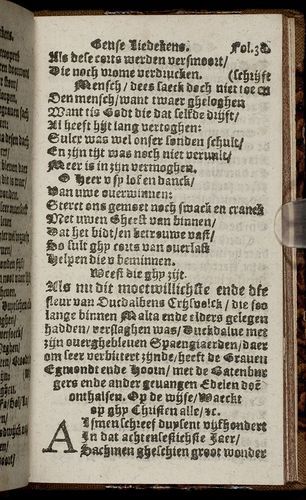 Geuse Liedekens. Fol.38
Als dese corts werden versmoort/
Die noch vrome verdrucken. (schrijft
Mensch / dees saeck doch niet toe en
Den mensch/ want twaer gheloghen
Want tis Godt die dat selfde drijft/
Al heeft hijt lang vertoghen:
Sulcx was wel onser sonden schult/
En zijn tijt was noch niet vervult/
Meer is in zijn vermoghen.
O Heer v sy lof en danck/
Van uwe overwinnen:
Sterct ons ghenoet noch swack en cranck
Met uwen Gheest van binnen/
Dat het bidt/ en betrouwe vast/
So sult ghy corts van overlast
Helpen die v beminnen.
Weest die ghy zijt.
Als nu dit moetwillichste ende de
fleur van Ducdalbens Crijsvolck / die soo
lange binnen Malta ende elders gelegen
hadden/ verslaghen was/ Duckdalve met
zijn overghebleven Spaengiaerden/ daer
om seer verbittert zijnde/ heeft de Graven
Egmondt ende Hoorn/ met de Batenbur
gers ende ander gevangen Edelen doē
onthalsen. Op de wijse/ Waeckt
op ghy Christen alle/ &c.
Alsmen schreef duysent vijfhondert
In dat achtensestichste Jaer/
Sachmen gheschien groot wonder